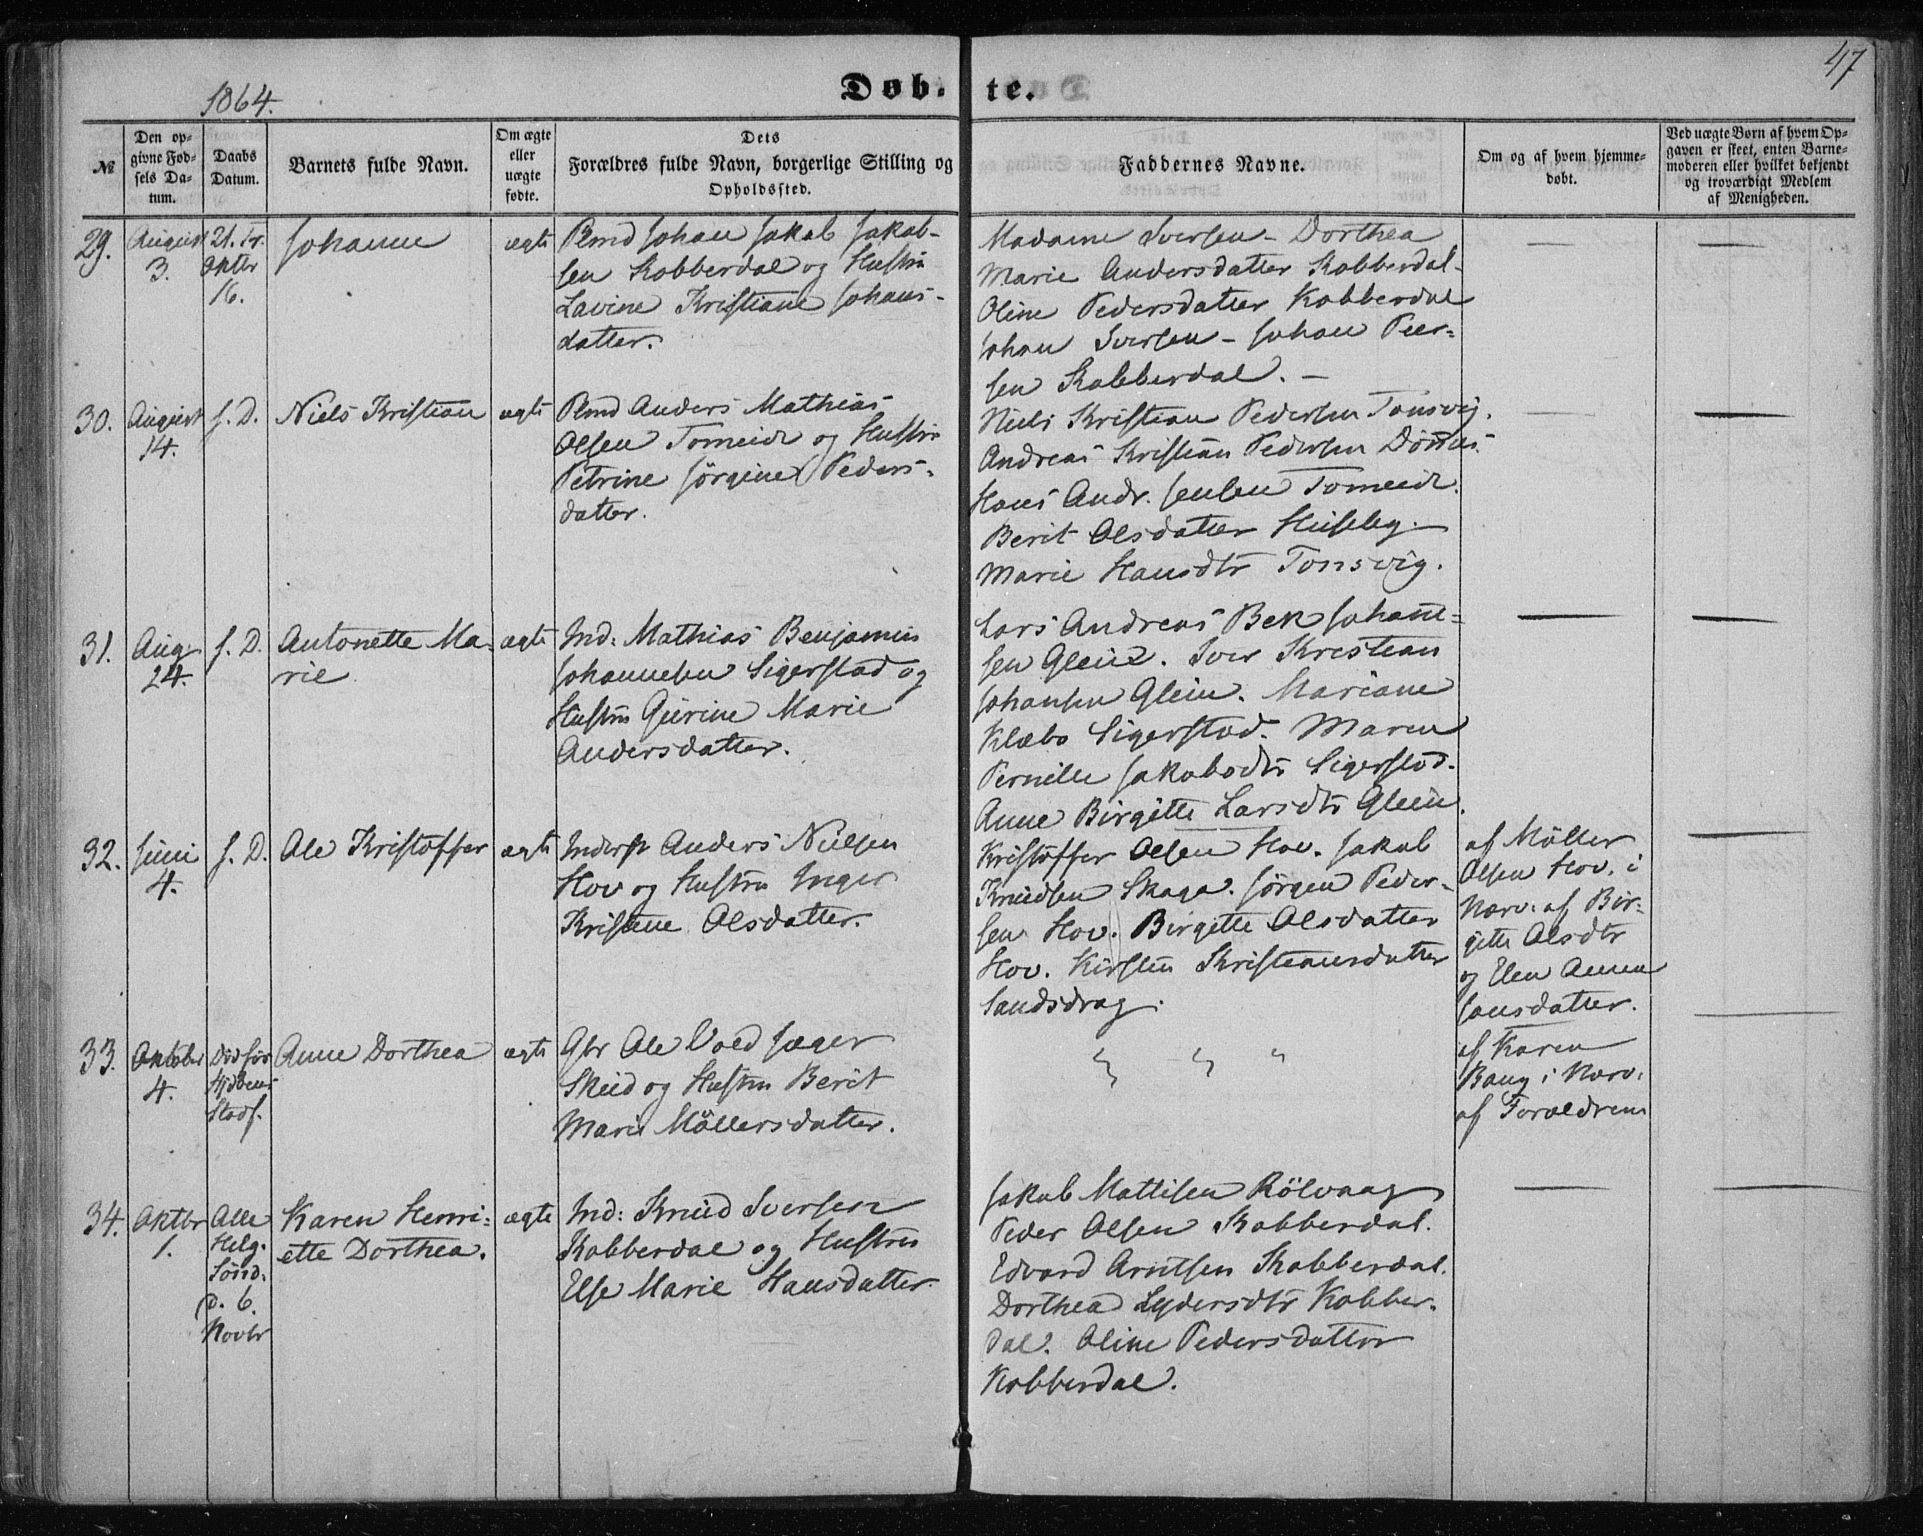 47
1864.
Døb- te.
№
Den op-
givne Fød-
sels Da-
tum.
Daabs
Datum.
Barnets fulde Navn.
Om ægte
eller
uægte
fødte.
Dets
Forældres fulde Navn, borgerlige Stilling og
Opholdssted.
Faddernes Navne.
Om og af hvem hjemme-
døbt.
Ved uægte Børn af hvem Op-
gaven er skeet, enten Barne-
moderen eller hvilket bekjendt
og troværdigt Medlem
af Menigheden.
29.
August
3.
21. Tr.
Oktbr
16.
Johanne
ægte
Plmd Johan Jakob Jakob-
sen Kobberdal og Hustru
Lavine Kristiane Johans-
datter.
Madame Iversen - Dorthea
Marie Andersdatter Kobberdal-
Oline Pedersdatter Kobberdal
Johan Iversen - Johan Peer-
sen Kobberdal. -
30.
August
14.
s. D.
Niels Kristian
ægte
Plmd Anders Mathias
Olsen Tomeide og Hustru
Petrine Jørgine Peders-
datter.
Niels Kristian Pedersen Tonsvig.
Andreas Kristian Pedersen Dønnes.
Hans Andr. Jensen Tomeide.
Berit Olsdatter Huseby.
Marie Hansdtr Tonsvig.
31.
Aug
24.
s. D.
Antonette Ma-
rie
ægte
Ind: Mathias Benjamin
Johannesen Sigerstad og
Hustru Gurine Marie
Andersdatter.
Lars Andreas Bek Johan-
sen Glein. Iver Kristian
Johansen Glein. Mariane
Klæbo Sigerstad. Maren
Pernille Jakobsdtr Sigerstad.
Anne Birgitte Larsdtr Glein.
32.
Juni
4.
s. D.
Ole Kristoffer
ægte
Inderst Anders Nielsen
Hov og Hustru Inger
Kristine Olsdatter.
Kristoffer Olsen Hov. Jakob
Knudsen Skaga. Jørgen Peder-
sen Hov. Birgitte Olsdatter
Hov. Kirsten Kristiansdatter
Sandsdrag.
af Møller
Olsen Hov. i
Nærv. af Bir-
gitte Olsdtr
og Elen Anna
Jonsdatter.
33.
Oktober
4.
Død før
Hjbens
Stadf.
Anne Dorthea
ægte
Gbr Ole Vold Jæger
Skeid og Hustru Berit
Marie Møllersdatter.
" " "
af Karen
Baug i Nærv.
af Forældrene
34.
Oktbr
1.
Alle
Helg.
Sønd.
d. 6.
Novbr
Karen Henri-
ette Dorthea.
ægte
Ind: Knud Iversen
Kobberdal og Hustru
Else Marie Hansdatter.
Jakob Mattisen Rölvaag
Peder Olsen Kobberdal.
Edvard Arntsen Kobberdal.
Dorthea Lydersdtr Kobber-
dal. Oline Pedersdatter
Kobberdal.